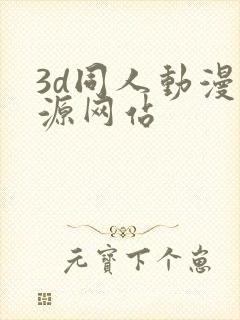 3d同人動漫
源网佔
元寶下个崽